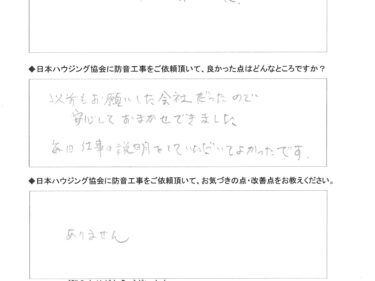 ◆日本ハウジング協会に防音工事をご依頼頂いて、良かった点はどんなところですか？
以前もお願いした会社だったので
安心しておまかせできました。
毎日仕事の説明をしていただいてよかったです。
◆日本ハウジング協会に防音工事をご依頼頂いて、お気づきの点・改善点をお教えください。
ありません